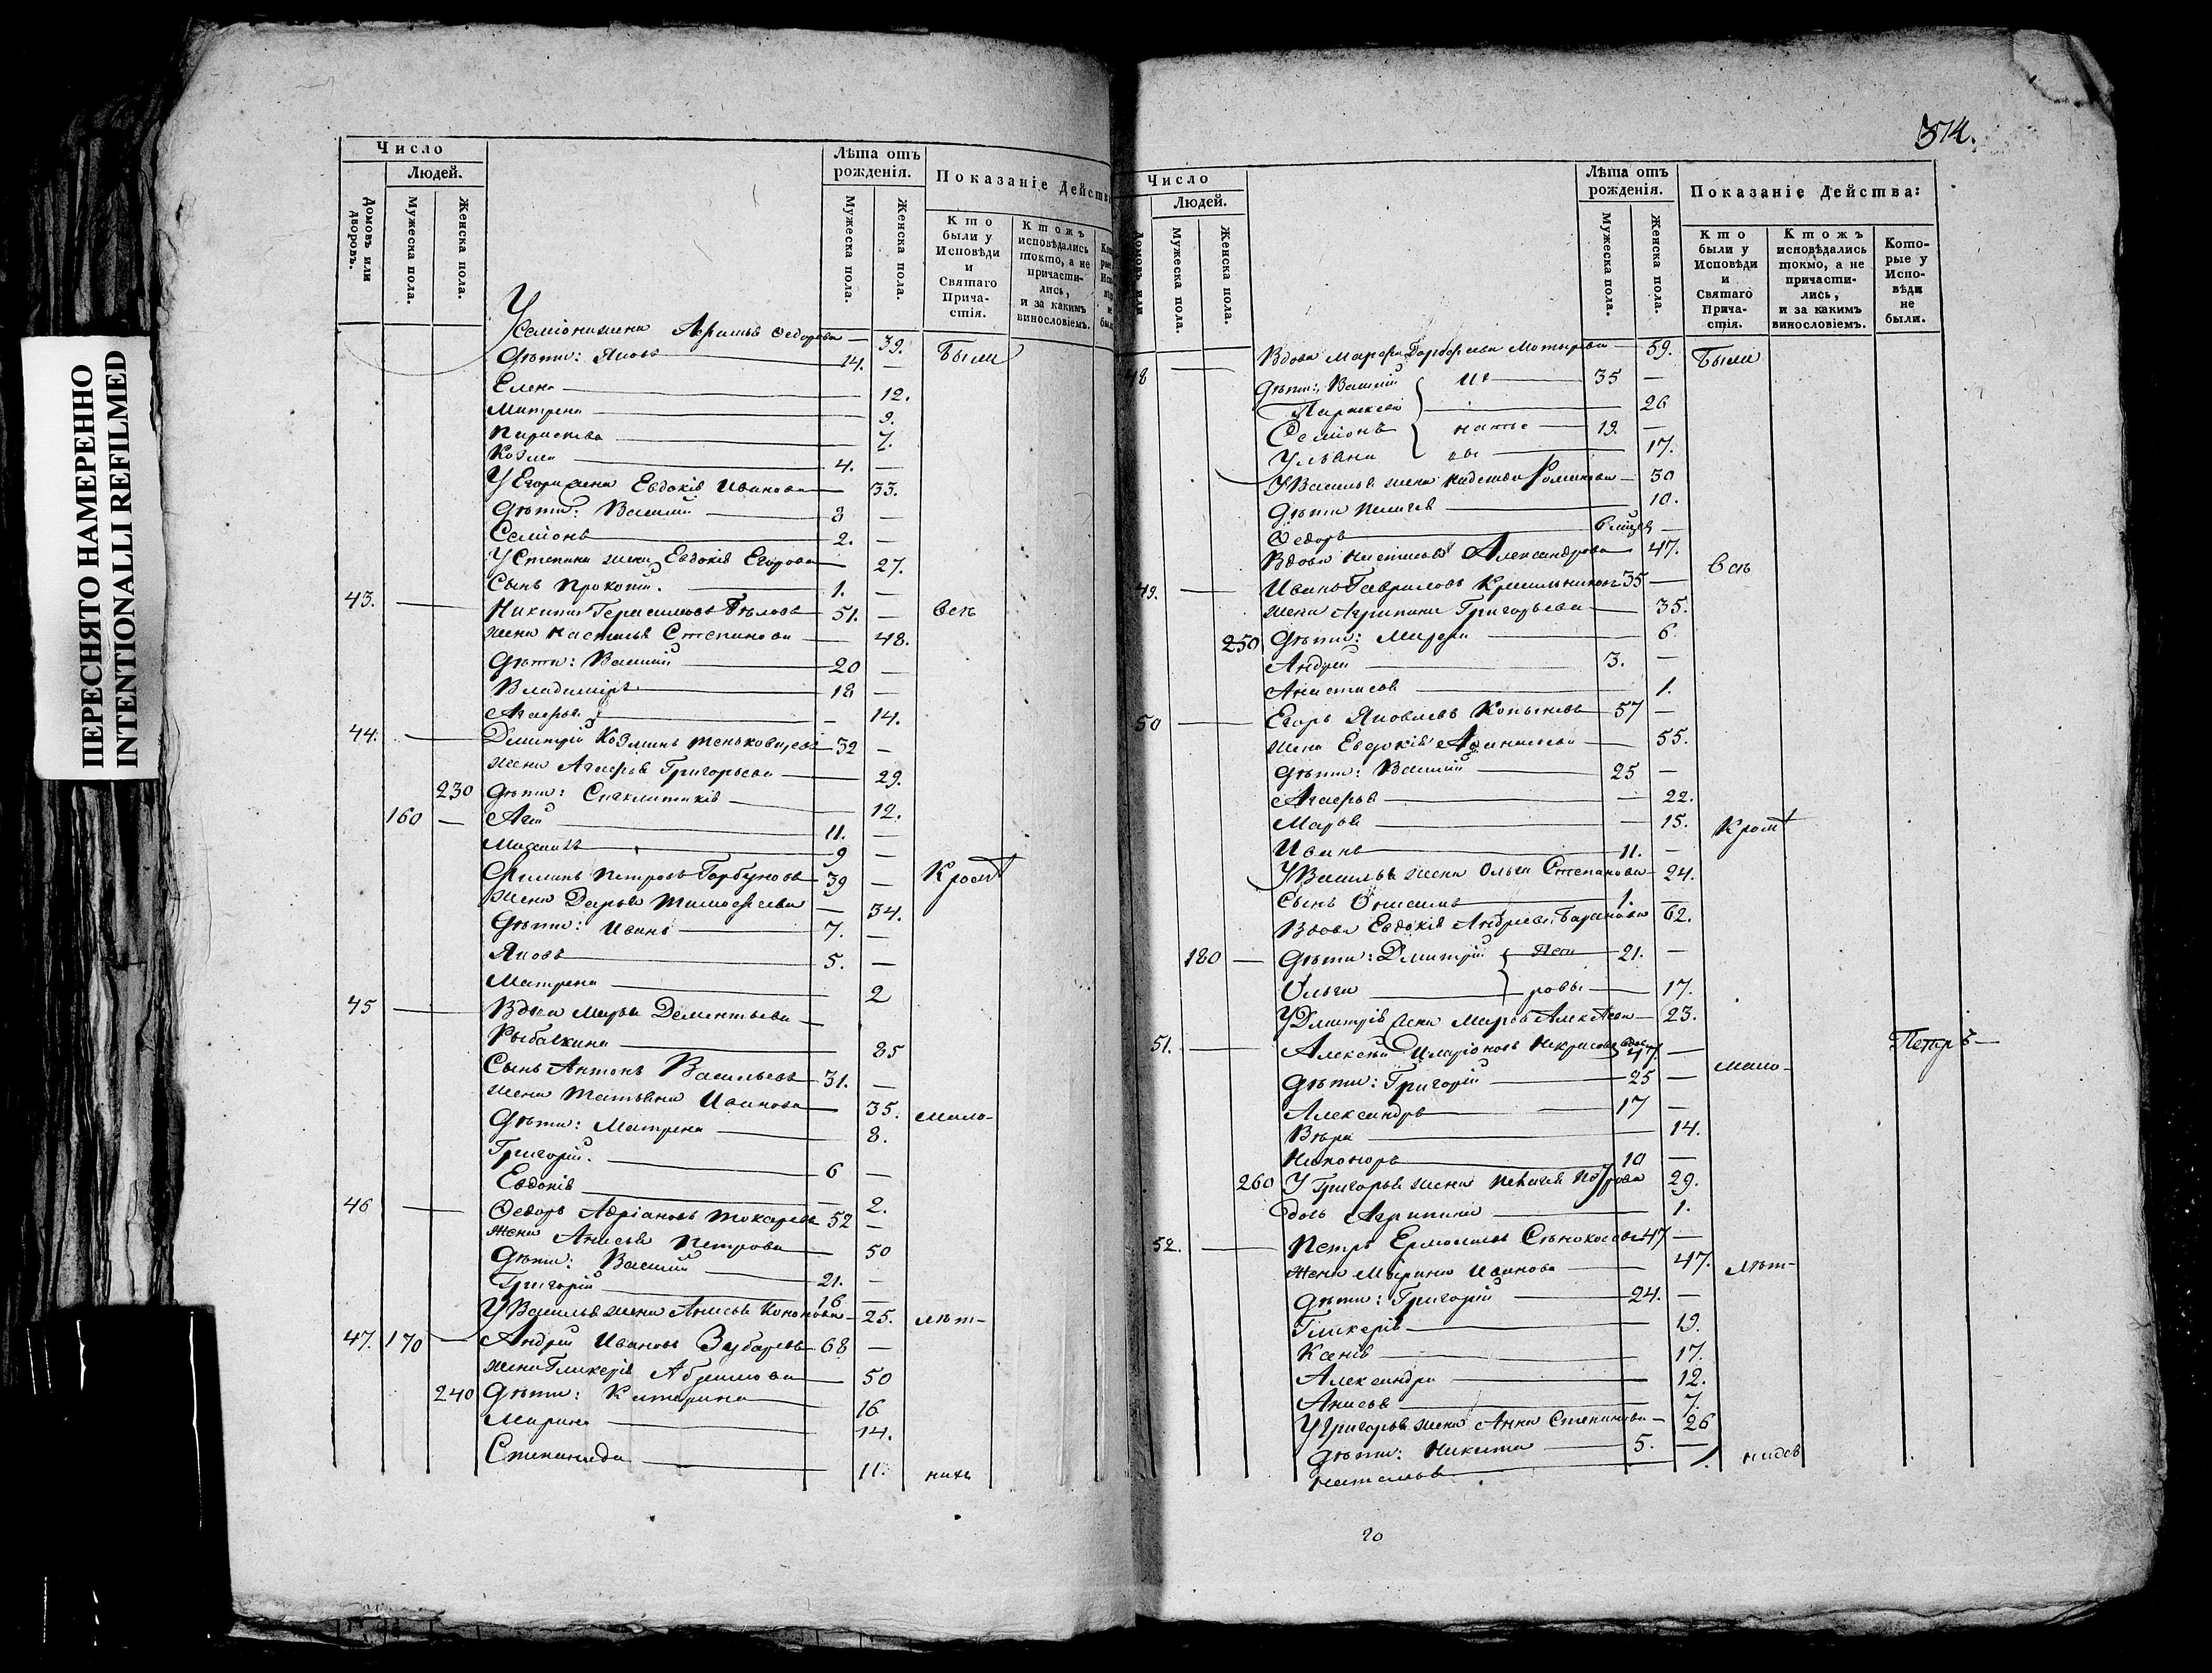 ПЕРЕСНЯТО НАМЕРЕННО
INTENTIONALLI REFILMED
Число
Людей.
Домовъ или дворовъ.
Мужеска пола.
Женска пола.
Лѣта отъ рожденія.
Мужеска пола.
Женска пола.
Показаніе Действ
Кто были у Исповѣди и Святаго Прича-стія.
Ктожъ исповѣдались токмо, а не причасти-лись, и за какимъ винословіемъ.
У Семіона жена Федорова — 39. Были
дѣти: Яковъ 14. —
Елена 12.
Матрена 9.
Параскева 7.
Козма 4. —
У Егора жена Евдокія Иванова 33.
дѣти: Василій 8 —
Семіонъ 2. —
У Степана жена Евдокія Егорова 27.
Сынъ Прокопій. 1. —
43. Никита Герасимовъ Бѣловъ 51. — всѣ
жена Настасья Степанова 48.
дѣти: Василій 20 —
Владиміръ 18 —
Агафья — 14.
44. Дмитрій Козминъ 32 —
жена Агафья Григорьева 29.
230 дѣти: 12.
160 — 11. —
9 —
Петровъ Горбуновъ 39 — Кромѣ
жена Дарья Тимофеева — 34.
дѣти: Иванъ 7. —
Яковъ 5. —
Матрена 2
45 Вдова Марья Дементьева —
Рыбалкина 85
Сынъ Антонъ Васильевъ 31. —
жена Татьяна Иванова 35. мало-
дѣти: Матрена 8.
Григорій. 6 —
Евдокія 2.
46 Ѳедоръ Адріановъ Токаревъ 52 —
жена Анисья Петрова — 50
дѣти: Василій 21. —
Григорій 16 —
У Василья жена Анисья 25. лѣт-
47. 170 Андрей Ивановъ Зубаревъ 68 —
жена Гликерія Абрамова 50
240 дѣти: Катерина 16
Марина 14.
Степанида 11. нихъ
374.
Число
Людей.
Домовъ или
Мужеска пола.
Женска пола.
Лѣта отъ рожденія.
Мужеска пола.
Женска пола.
Показаніе Действа:
Кто были у Исповѣди и Святаго Прича-стія.
Ктожъ исповѣдались токмо, а не причасти-лись, и за какимъ винословіемъ.
Кото-рые у Испо-вѣди не были.
48 Вдова Марфа 59. Были
дѣти: Василій Иг 35 —
Параскева 26
Семіонъ натье 19. —
Ульяна вы 17.
У Василья жена 30
дѣти Пелагея 10.
Ѳедоръ —
Вдова Настасья Александрова 47.
49. Иванъ Гавриловъ 35 — всѣ
жена Агрипина Григорьева 35.
250 дѣти: Марфа 6.
Андрей 3. —
Анастасья 1.
50 Егоръ Яковлевъ 57 —
жена Евдокія 55.
дѣти: Василій 25 —
Агафья — 22.
Марья — 15. Кромѣ
Иванъ 11. —
У Василья жена Ольга Степанова 24.
Сынъ 1. —
Вдова Евдокія Андреева Баранова 62.
180 — дѣти: Дмитрій Пет 21. —
Ольга ровы 17.
У Дмитрія жена Марья Алексѣева 23.
51. Алексѣй Иларіоновъ Некрасовъ вдов 47. — Петръ —
дѣти: Григорій 25 — мало-
Александръ 17 —
Вѣра 14.
Никоноръ 10 —
260 У Григорья жена Пелагея 29.
дочь Агрипина 1.
52. Петръ Ермолаевъ Сѣнокосовъ 47 —
жена Марина Иванова 47. лѣт-
дѣти: Григорій 24. —
Гликерія 19.
Ксенія 17.
Александра 12.
Анисья 7.
У Григорья жена Анна Степанова 26
дѣти: Никита 5. —
Наталья 1.
20